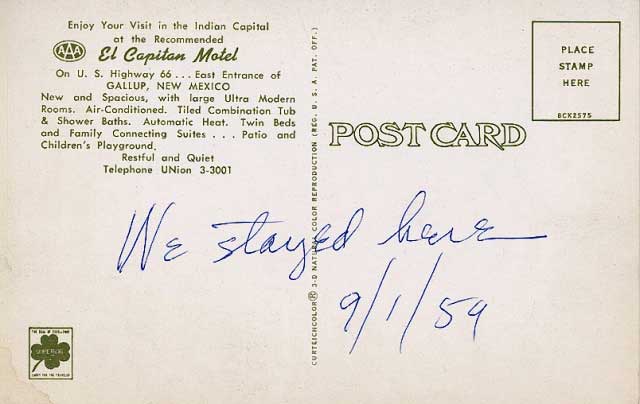 Enjoy Your Visit in the Indian Capital
at the Recommended
AAA El Capitan Motel
On U. S. Highway 66 . . . East Entrance of
GALLUP, NEW MEXICO
New and Spacious, with large Ultra Modern
Rooms. Air-Conditioned. Tiled Combination Tub
& Shower Baths. Automatic Heat. Twin Beds
and Family Connecting Suites . . . Patio and
Children's Playground.
Restful and Quiet
Telephone UNion 3-3001
CURTEICHCOLOR® 3-D NATURAL COLOR REPRODUCTION (REG. U. S. A. PAT. OFF.)
POST CARD
PLACE
STAMP
HERE
BCK2575
We stayed here
9/1/59
SUPERIOR